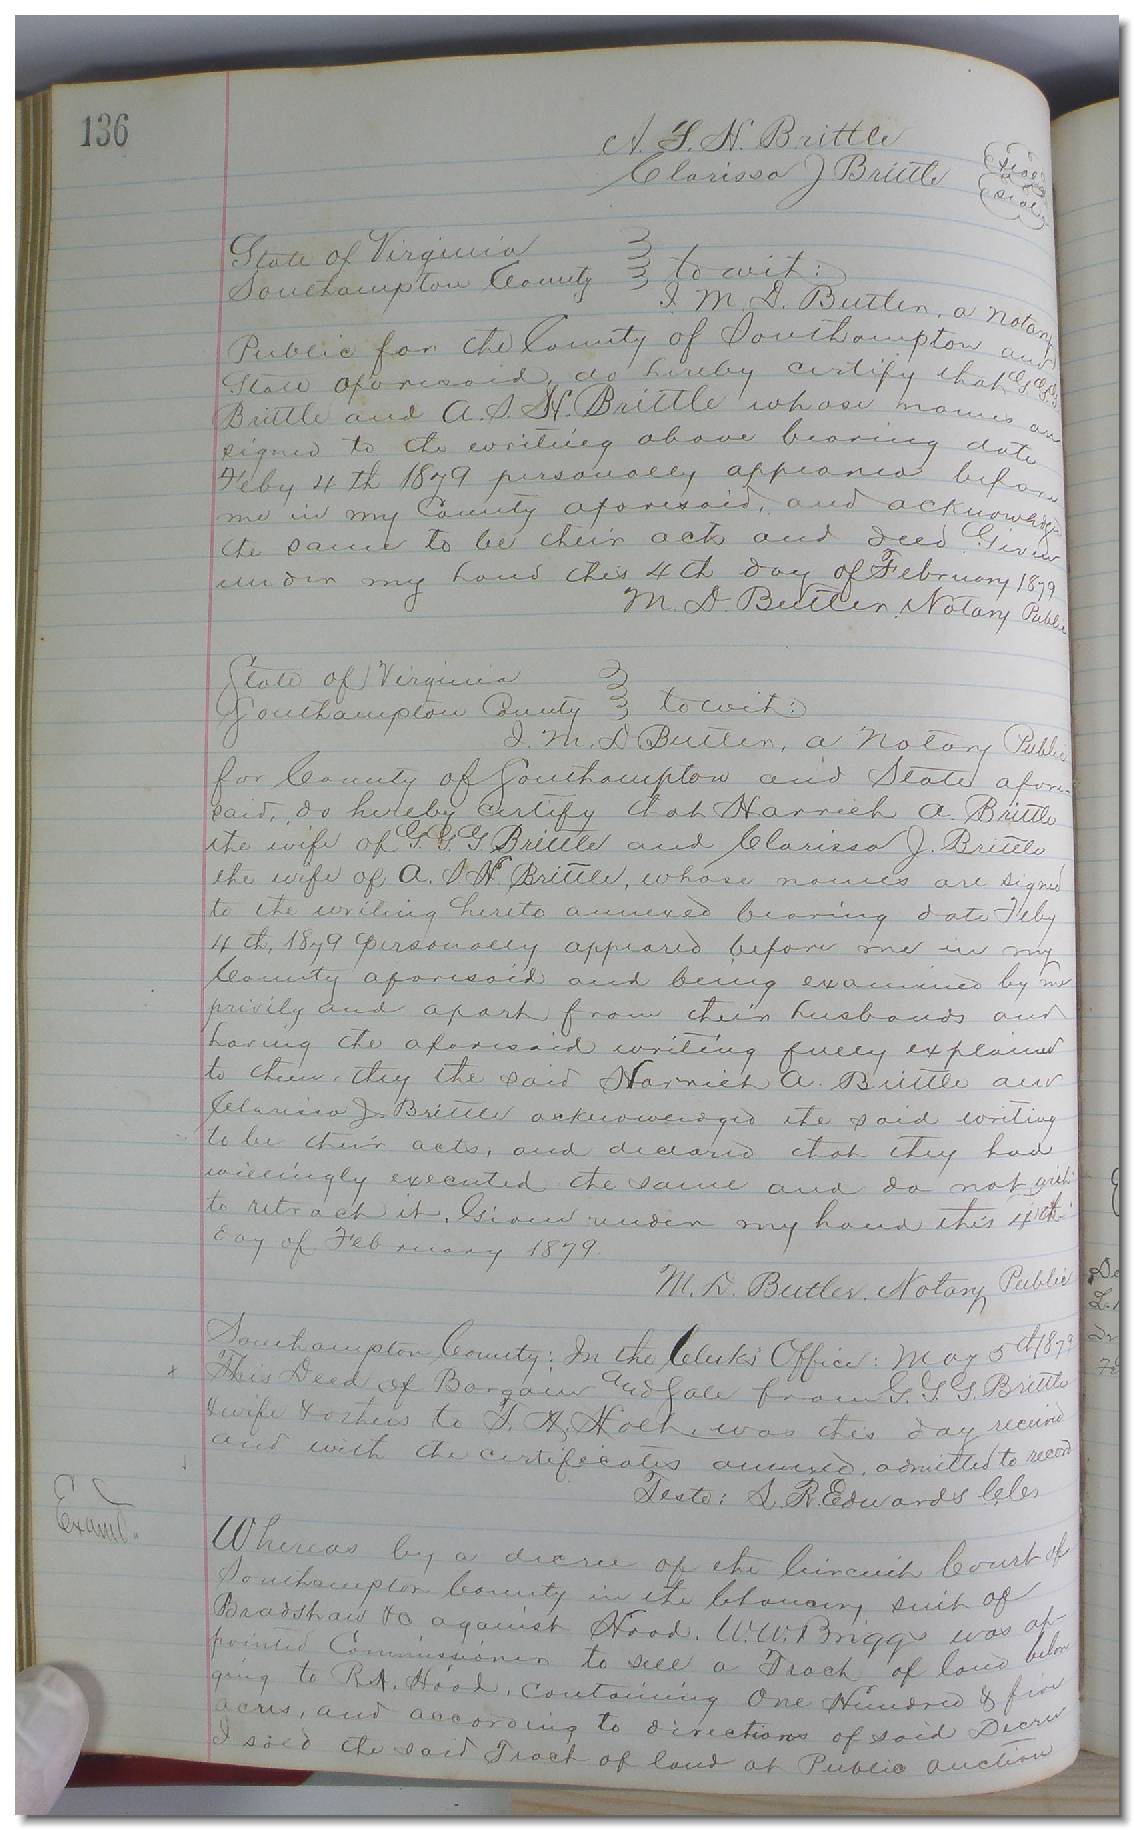 136
A. S. H. Brittle
Clarissa J Brittle
seal
seal
State of Virginia
Southampton County to wit:
I M. D. Butler, a Notary
Public for the County of Southampton and
State aforesaid, do hereby certify that G. G. G.
Brittle and A. S. H. Brittle whose names are
signed to the writing above bearing date
Feby 4th 1879 personally appeared before
me in my County aforesaid, and acknowledge
the same to be their act and deed Given
under my hand this 4th day of February 1879
M. D. Butler, Notary Public
State of Virginia
Southampton County to wit:
I. M. D Butler, a Notary Public
for County of Southampton and State afore
said, do hereby certify that Harriet A. Brittle
the wife of G. G. G Brittle and Clarissa J. Brittle
the wife of A. S H Brittle, whose names are signed
to the writing hereto annexed bearing date Feby
4th, 1879 personally appeared before me in my
County aforesaid and being examined by me
privily and apart from their husbands and
having the aforesaid writing fully explained
to them, they the said Harriet A. Brittle and
Clarissa J. Brittle acknowledged the said writing
to be their acts, and declared that they had
willingly executed the same and do not wish
to retract it. Given under my hand this 4th
day of February 1879.
M. D. Butler, Notary Public
Southampton County: In the Clerk's Office: May 5th 1879
This Deed of Bargain and Sale from G. G. G. Brittle
& wife & others to was this day received
and with the certificates annexed, admitted to record
Teste: L R Edwards Cler
Examd.
Whereas by a decree of the Circuit Court of
Southampton County in the Chancery suit of
Bradshaw &c against Hood. W. W. Briggs was ap-
pointed Commissioner to sell a Tract of land belon
ging to R A. Hood, containing One Hundred & five
acres, and according to directions of said Decree
I sold the said Tract of land at Public auction